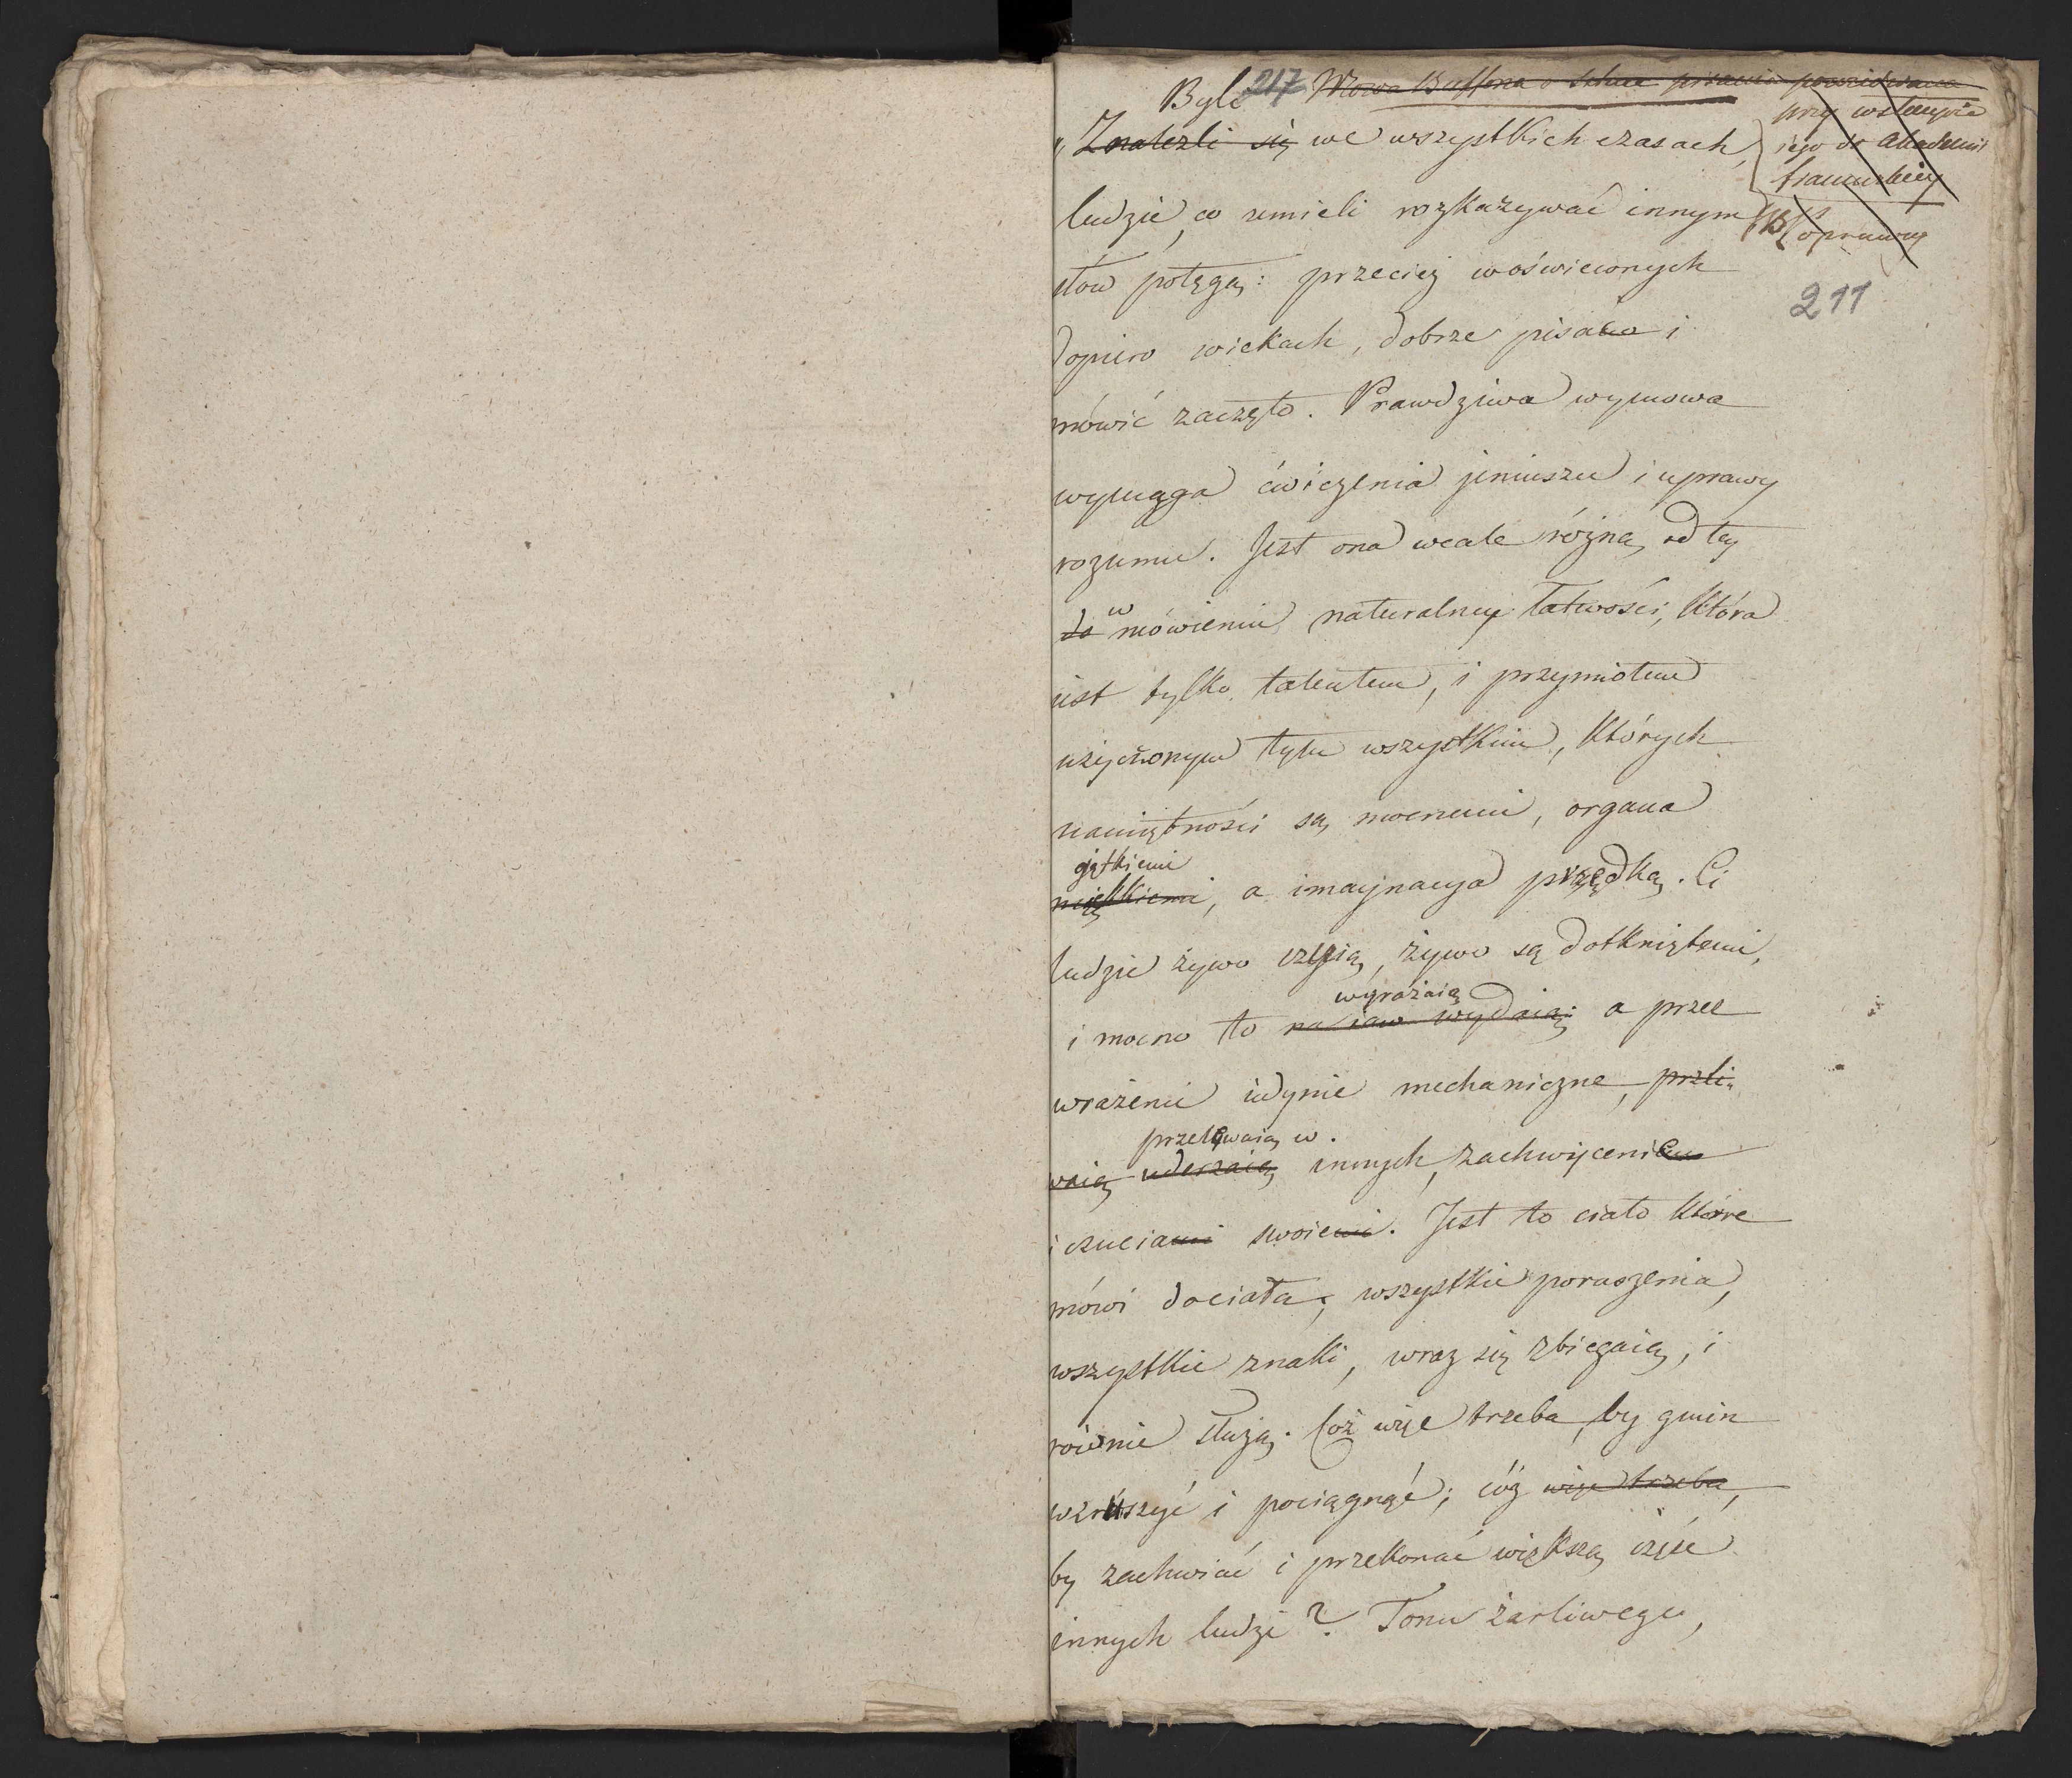 217 Mowa Buffona o sztuce pisania powiedziana
przy wstąpie
iego do Akademii
francuskiey
Byli
„Znalezli się we wszystkich czasach,
ludzie, co umieli rozkazywać innym
słów potęgą: przecięż w oświeconych
211
dopiero wiekach, dobrze pisano i
mówić zaczęto. Prawdziwa wymowa
wymaga ćwiczenia jeniuszu i uprawy
rozumu. Jest ona wcale różną od tey
do w mówieniu naturalney łatwości, która
iest tylko talentem, i przymiotem
użyczonym tym wszystkim, których
namiętności są mocnemi, organa
giętkiemi
miękkiemi, a imaginacya prędką. Ci
ludzie żywo czuią, żywo są dotkniętemi,
wyrażaią
i mocno to na iaw wydaią; a przez
wrażenie iedynie mechaniczne, przeli-
przelewaią w
waią uderzaią innych, zachwyceniem
i czuciami swoiemi. Jest to ciało które
mówi do ciała; wszystkie poruszenia,
wszystkie znaki, wraz się zbiegaią, i
rownie służą. Coż więc trzeba, by gmin
wzruszyć i pociągnąć; cóż więc trzeba,
by zachwiać i przekonać większą część
innych ludzi? Tonu żarliwego,